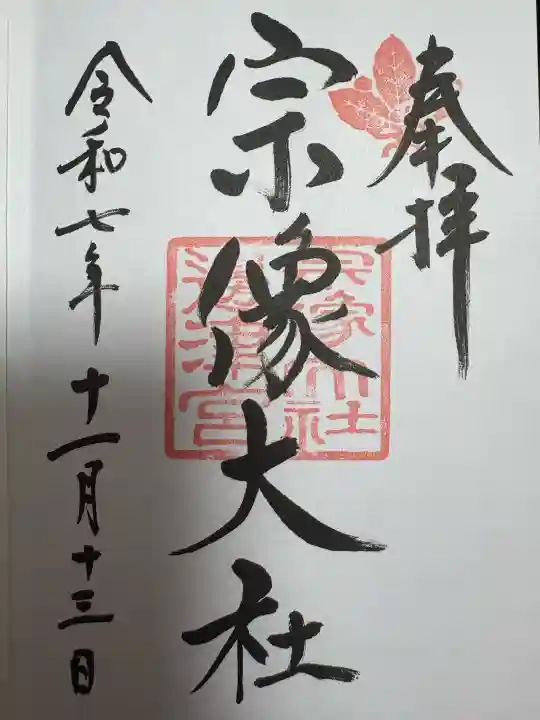 奉拝
宗像大社
宗像大社
邊津宮
令和七年十一月十三日